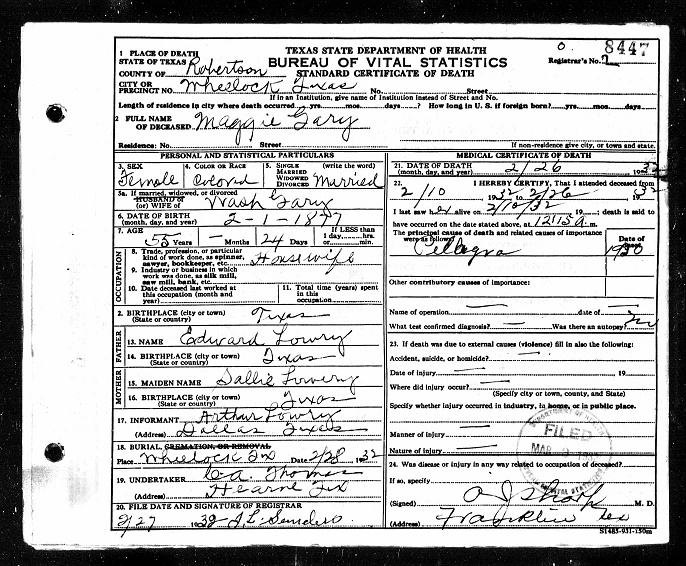 O. 8447
1 PLACE OF DEATH
STATE OF TEXAS
COUNTY OF Robertson
CITY OR
PRECINCT NO. Wheelock Texas No. Street
TEXAS STATE DEPARTMENT OF HEALTH
BUREAU OF VITAL STATISTICS
STANDARD CERTIFICATE OF DEATH
Registrar's No. 2
If in an Institution, give name of Institution instead of Street and No.
Length of residence in city where death occurred yrs. mos. days. How long in U. S. if foreign born? yrs. mos. days
2 FULL NAME
OF DECEASED Maggie Gary
Residence: No. Street
If non-residence give city, or town and state.
PERSONAL AND STATISTICAL PARTICULARS
3. SEX
Female
4. COLOR OR RACE
Colored
5. SINGLE (write the word)
MARRIED
WIDOWED
DIVORCED Married
5a. If married, widowed, or divorced
HUSBAND OF
(or) WIFE OF Wash Gary
6. DATE OF BIRTH
(month, day, and year) 2-1-1877
7. AGE
55 Years – Months 24 Days
If LESS than
1 day, hrs.
or min.
OCCUPATION
8. Trade, profession, or particular
kind of work done, as spinner,
sawyer, bookkeeper, etc. Housewife
9. Industry or business in which
work was done, as silk mill,
saw mill, bank, etc.
10. Date deceased last worked at
this occupation (month and
year)
11. Total time (years) spent
in this
occupation
2. BIRTHPLACE (city or town)
(State or country) Texas
FATHER
13. NAME Edward Lowry
14. BIRTHPLACE (city or town)
(State or country) Texas
MOTHER
15. MAIDEN NAME Sallie Lowery
16. BIRTHPLACE (city or town)
(State or country) Texas
17. INFORMANT Arthur Lowry
(Address) Dallas Texas
18. BURIAL, CREMATION, OR REMOVAL
Place Wheelock Tex Date 2/28 1932
19. UNDERTAKER Ca Thomas
(Address) Hearne Tex
20. FILE DATE AND SIGNATURE OF REGISTRAR
2/27 1932
MEDICAL CERTIFICATE OF DEATH
21. DATE OF DEATH
(month, day, and year) 2/26 1932
22. I HEREBY CERTIFY, That I attended deceased from
2/10 1932, 2/26 1932
I last saw her alive on 2/10/32 19 ; death is said to
have occurred on the date stated above, at 12:15 a. m.
The principal cause of death and related causes of importance
were as follows:
Pellagra
Date of
Onset
1930
Other contributory causes of importance:
Name of operation date of
What test confirmed diagnosis? Was there an autopsy?
23. If death was due to external causes (violence) fill in also the following:
Accident, suicide, or homicide?
Date of injury 19
Where did injury occur?
(Specify city or town, county, and State)
Specify whether injury occurred in industry, in home, or in public place.
Manner of injury
Nature of injury
FILED
24. Was disease or injury in any way related to occupation of deceased?
If so, specify
(Signed) M. D.
(Address) Franklin Tex
S1485-931-150m